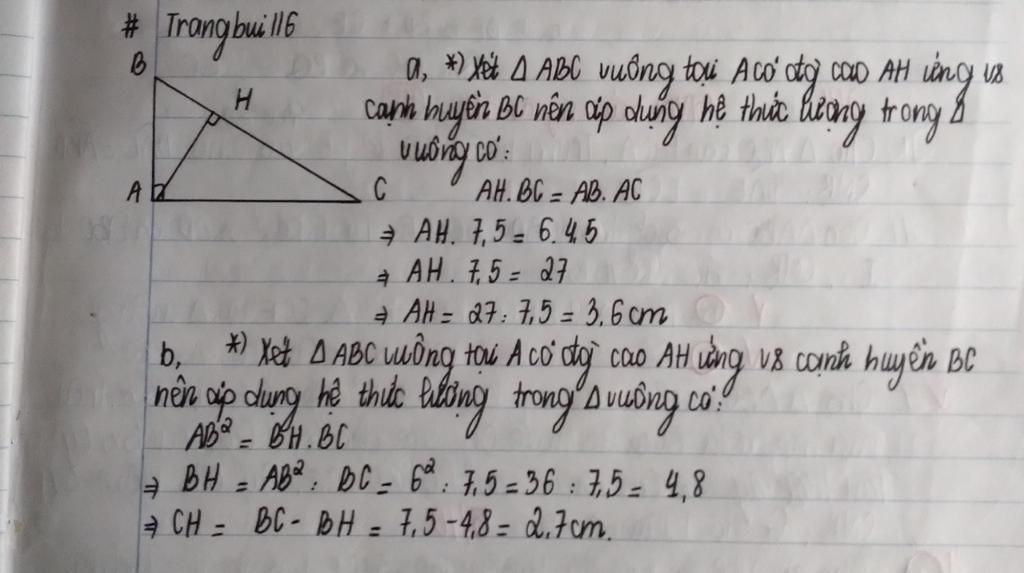 # Trangbui116
B
H
A
C
a, *) Xét Δ ABC vuông tại A có đg cao AH ứng vs
cạnh huyền BC nên áp dụng hệ thức lượng trong Δ
vuông có:
AH.BC = AB.AC
⇒ AH. 7,5 = 6.4,5
⇒ AH. 7,5 = 27
⇒ AH = 27 : 7,5 = 3,6 cm
b, *) Xét Δ ABC vuông tại A có đg cao AH ứng vs cạnh huyền BC
nên áp dụng hệ thức lượng trong Δ vuông có:
AB² = BH.BC
⇒ BH = AB² : BC = 6² : 7,5 = 36 : 7,5 = 4,8
⇒ CH = BC - BH = 7,5 - 4,8 = 2,7 cm.